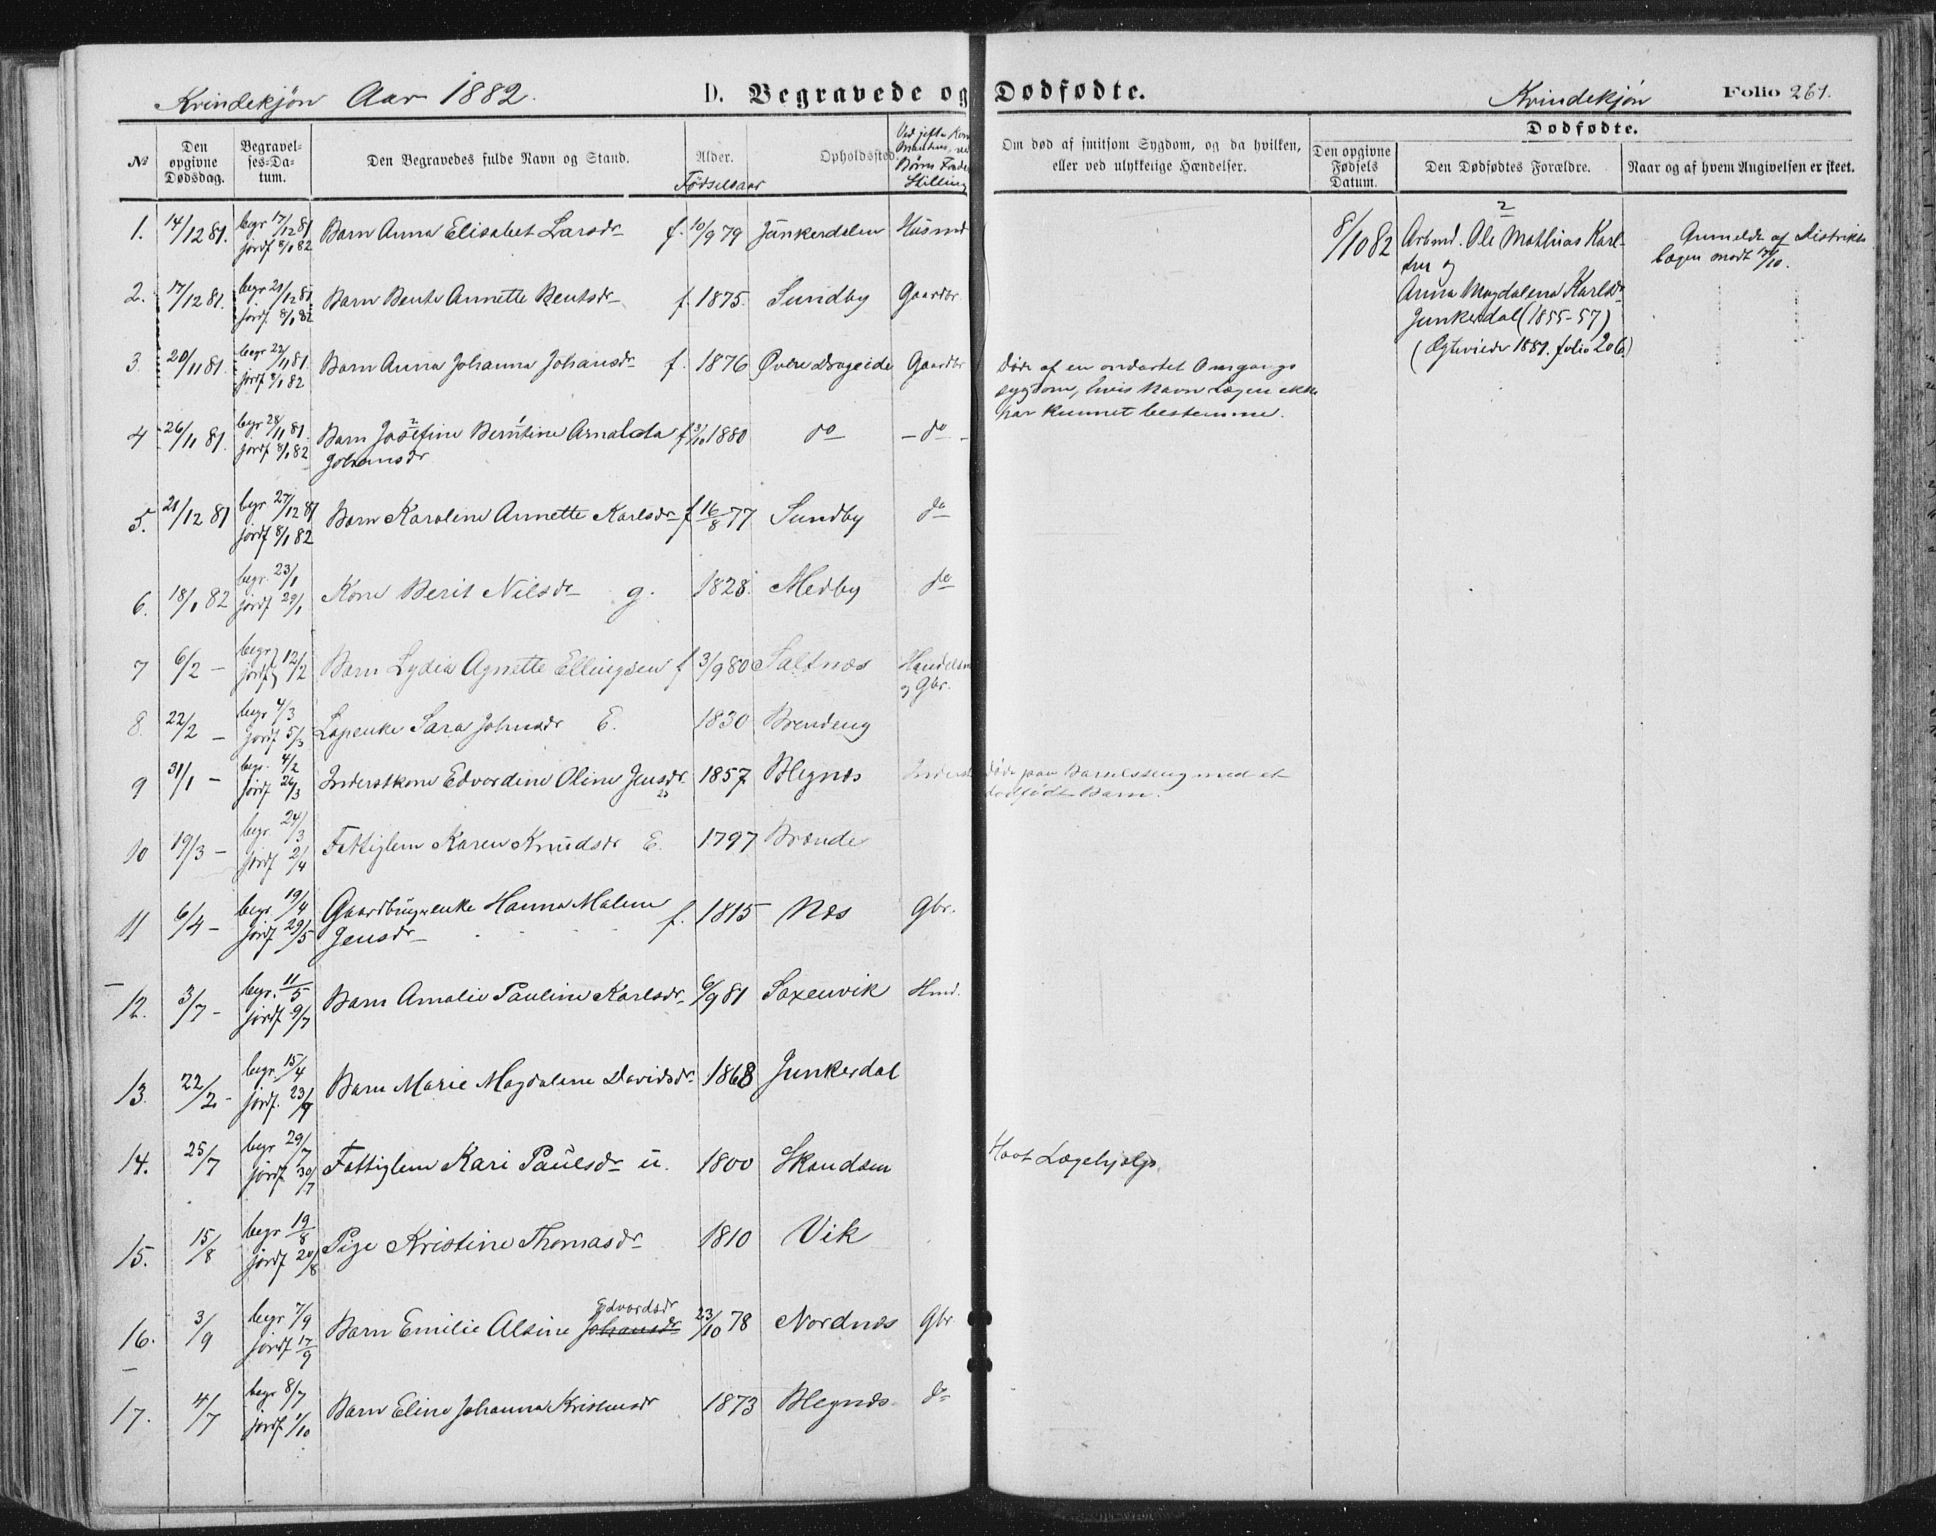 Kvindekjøn Aar 1882. D. Begravede og Dødfødte. Kvindekjön Folio 261.
№ Den opgivne Dødsdag. Begravelses-Datum. Den Begravedes fulde Navn og Stand. Alder. Födselsaar Opholdssted. Stilling
Om død af smitsom Sygdom, og da hvilken, eller ved ulykkelige Hændelser.
Dødfødte.
Den opgivne Fødsels Datum. Den Dødfødtes Forældre. Naar og af hvem Angivelsen er skeet.
1. 14/12 81. begr 17/12 81 jordf 8/1 82 Barn Anna Elisabet Larsdr f. 10/9 79 Junkerdalen Husmd
2. 17/12 81. begr 21/12 81 jordf. 8/1 82 Barn Bente Annette Bentsdr f. 1875. Sundby Gaardbr.
3. 20/11 81. begr 22/11 81. jordf 8/1 82 Barn Anna Johanna Johansdr f. 1876 Øvere Drageide Gaardbr
Döde af en ondartet Omgangs
sygdom, hvis Navn Lægen ikke
har kunnet bestemme.
4 26/11 81. begr 28/11 81. jordf 8/1 82 Barn Josefine Berntine Arnalda f 3/10 1880 do – do –
Johansdr
5. 21/12 81 begr 27/12 81 jordf 8/1 82 Barn Karoline Annette Karlsdr f 16/8 77 Sundby do
6. 18/1 82 begr. 23/1 jordf 29/1 Kone Berit Nilsdr g. 1828. Medby do
7 6/2 – begr jordf 12/2 Barn Lydia Agnette Ellingsen f 3/9 80 Saltnæs Handelsm
og Gbr.
8. 22/2 – begr 4/3 jordf 5/3 Lapenke Sara Johnsdr E. 1830 Brendeng
9 31/1 – begr. 4/2 jordf 26/3 Inderstkone Edvardine Oline Jensdr 1857 Blegnæs Inderst
Döde paa Barselseng med et
dödfödt Barn.
10 19/3 – begr 24/3 jordf 2/4 Fattiglem Karen Knudsdr E. 1797 Brænde
11 6/4 – begr. 19/4 jordf 29/5 Gaardbrugerenke Hanna Malene f. 1815 Næs Gbr.
Jensdr
12. 3/7 – begr. 11/5 jordf 9/7 Barn Amalie Pauline Karlsdr 6/9 81 Saxenvik Hmd.
13. 22/2 – begr 15/4 jordf. 23/7 Barn Marie Magdalene Davidsdr 1868 Junkerdal
14. 25/7 begr 29/7 jordf 30/7 Fattiglem Kari Paulsdr u. 1800 Skandsen
Havt Lægehjælp.
15. 15/8 begr 19/8 jordf 20/8 Pige Kristine Thomasdr 1810 Vik
16. 3/9 begr 7/9 jordf 17/9 Barn Emilie Alsine Johansdr Edvardsdr 23/10 78 Nordnæs Gbr
17. 4/7 begr 8/7 jordf 1/10 Barn Eline Johanna Kristensdr 1873 Blegnæs do
8/10 82 Arbmd. Ole Mathias Karl-
sen og
Anna Magdalena Karlsdr
Junkerdal (1855-57)
(Ægteviede 1881. folio 206)
Anmeldt af Distrikts
lægen